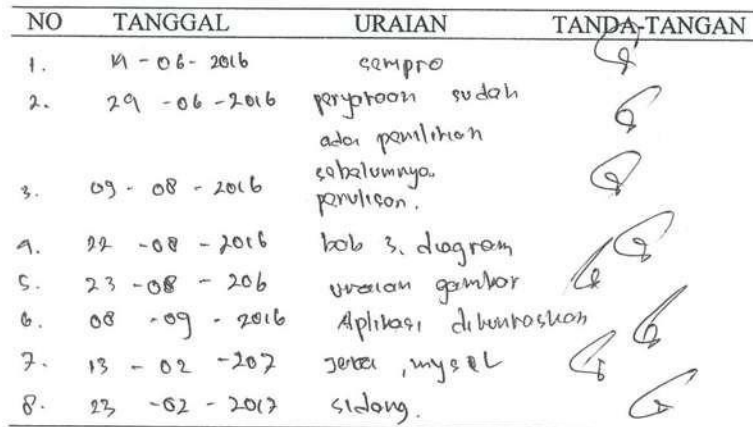 NO TANGGAL URAIAN TANDA-TANGAN
1. 14 - 06 - 2016 sempro
2. 29 - 06 - 2016 peryataan sudah
ada penilitian
sebelumnya.
3. 09 - 08 - 2016 penulisan.
4. 22 - 08 - 2016 bab 3. diagram
5. 23 - 08 - 206 uraian gambar
6. 08 - 09 - 2016 Aplikasi dituntaskan
7. 13 - 02 - 207 , mysQL
8. 23 - 02 - 2017 sidang.